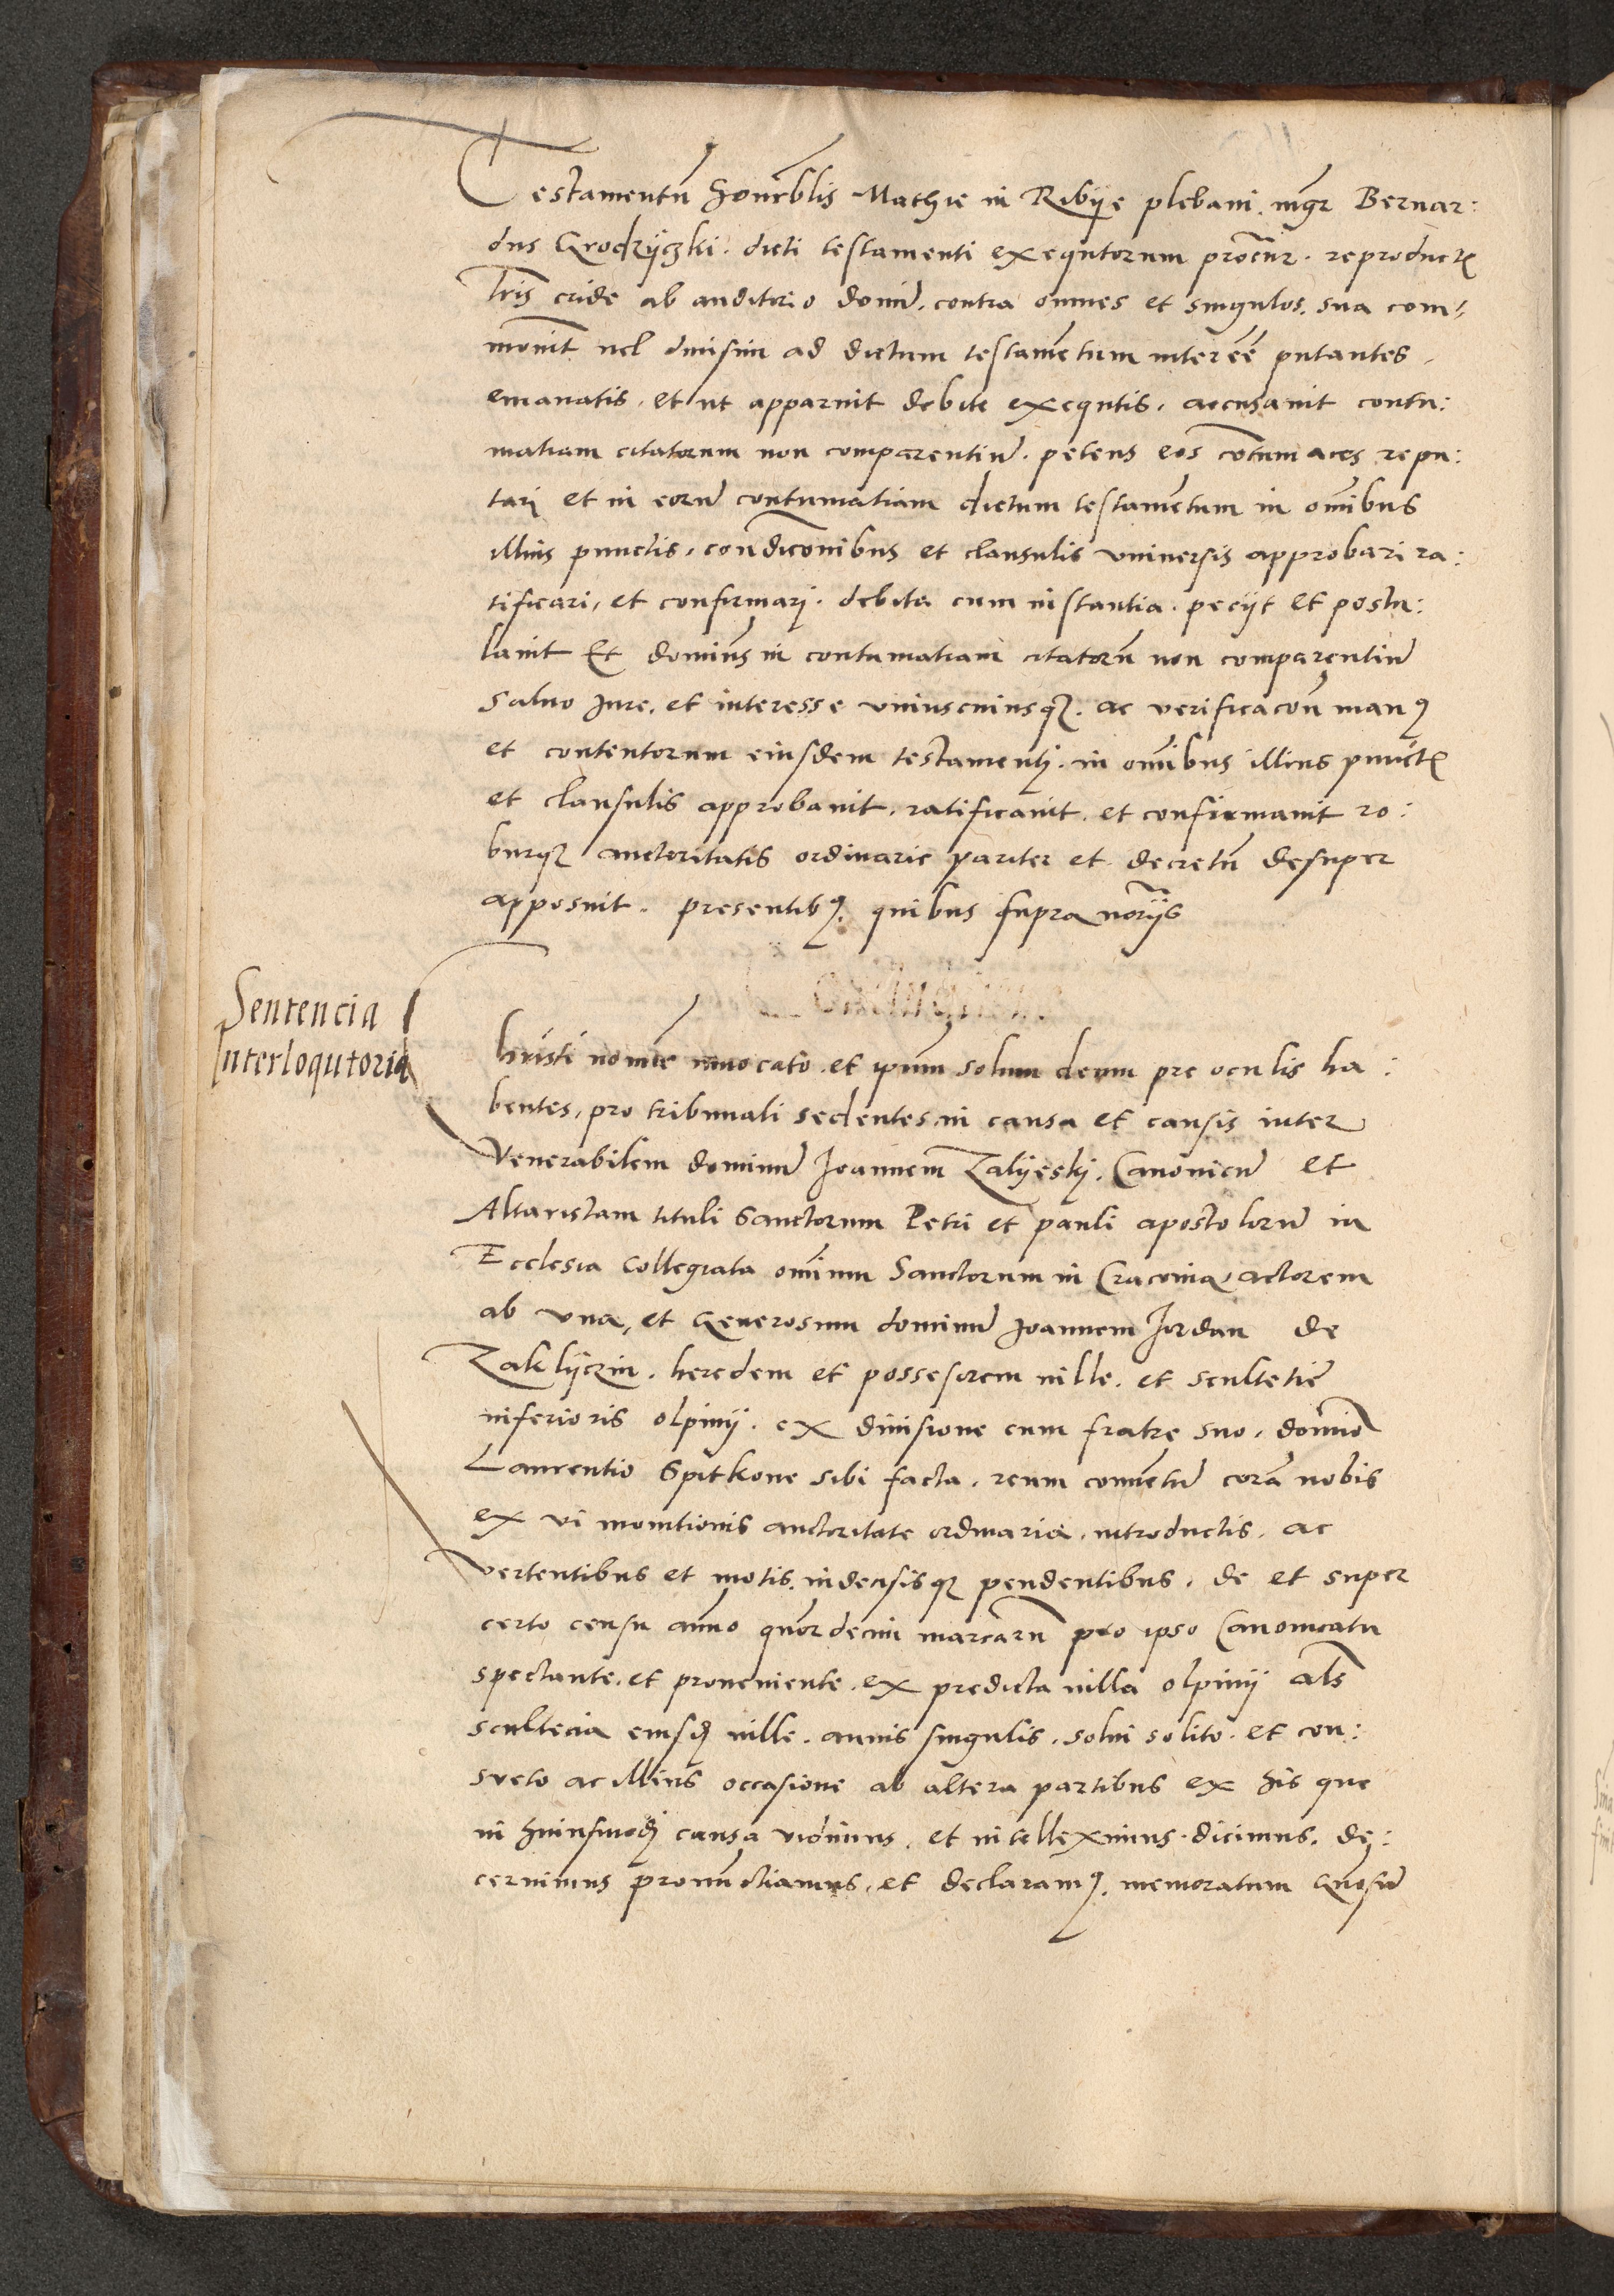 Testamentū honorblis Mathie in Ribÿe plebani. mgr̄ Bernar:
dus Grodzÿczki. dicti testamenti exequtorum procur̄. reproductꝭ
lr̄is cride ab auditorio domī. contra omnes et singulos. sua com=
mōnit uel diuisim ad dictum testamētum interēē putantes.
emanatis. et ut apparuit debite exequtis. accusauit contu:
matiam citatorum non comparentiū. petens eos cōtumaces repu:
tari et in eorū contumatiam dictum testamētum in om̄ibus
illius punctis. condic̄onibus et clausulis vniuersis approbari ra:
tificari, et confirmari. debita cum instantia. peciit et postu:
lauit Et dominus in contumatiam citatorū non comparentiū
saluo Jure. et interesse vniuscuiusqꝫ. ac verificac̄on manꝰ
et contentorum eiusdem testamenti. in om̄ibus illius punctꝭ
et clausulis approbauit. ratificauit. et confirmauit ro:
burqꝫ auctoritatis ordinarie pariter et decretū desuper
apposuit. presentibꝰ. quibus supra notr̄iis
Sentencia
Interloqutoria
Christi nomīe inuocato. et ipsum solum deum pre oculis ha:
bentes. pro tribunali sedentes in causa et causis inter
Venerabilem dominū Joannem Zalÿeskj. Canonicū et
Altaristam tituli Sanctorum Petri et pauli apostolorū in
Ecclesia Collegiata om̄ium Sanctorum in Cracouia actorem
ab vna, et Generosum dominū Joannem Jordan de
Zaklÿczin. heredem et possessorem uille. et scultetiē
inferioris olpinÿ. ex diuisione cum fratre suo. domīo
Laurentio Spitkone sibi facta. reum conuētū corā nobis
ex vi monitionis auctoritate ordinaria. introductis. ac
vertentibus et motis. indecisisqꝫ pendentibus. de et super
certo censu an̄uo quor̄decim marcarū pro ipso Canonicatu
spectante. et proueniente. ex predicta uilla olpinÿ als̄
scultecia eiusdꝫ uille. annis singulis. solui solito. et con:
sueto ac illius occasione ab altera partibus ex his que
in huiusmodi causa vidimus. et intelleximus. dicimus. de:
cernimus pronunctiamus. et declaramꝰ. memoratum Gn̄osū